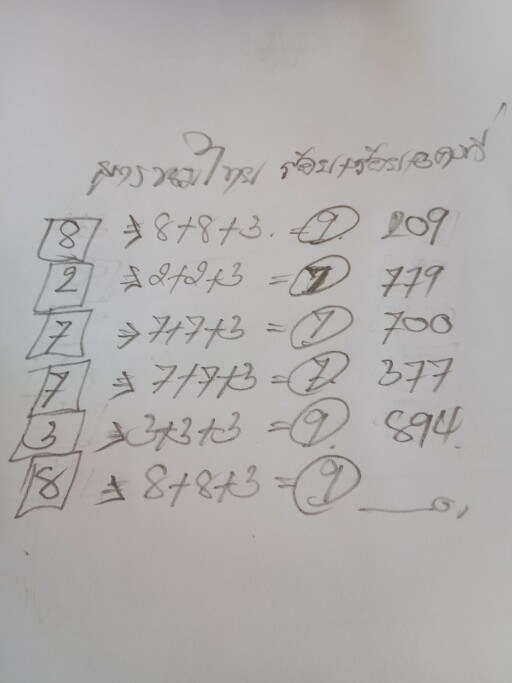 สูตร หนมไทย ร้อย+ร้อย+3 คงที่
8 ⇒ 8+8+3. = 9. 209
2 ⇒ 2+2+3 = 7 779
7 ⇒ 7+7+3 = 7 700
7 ⇒ 7+7+3 = 7. 377
3 ⇒ 3+3+3 = 9. 894.
8 ⇒ 8+8+3 = 9